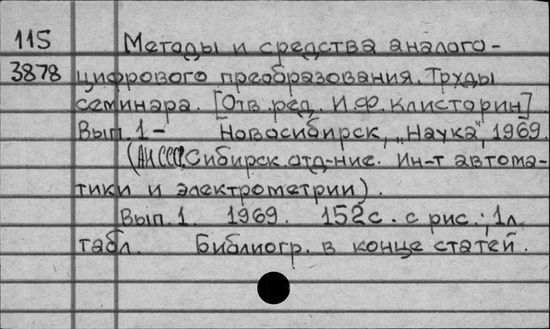 115 Методы и средства аналого-
3878 цифрового преобразования. Труды
семинара. [Отв. ред. И.Ф. Клисторин]
Вып. 1- Новосибирск, "Наука", 1969.
(АН СССР, Сибирск. отд-ние. Ин-т автома-
тики и электрометрии).
Вып. 1. 1969. 152 с. с рис.; 1 л.
табл. Библиогр. в конце статей.